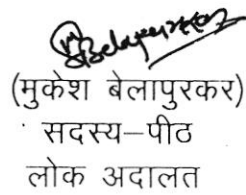 (मुकेश बेलापुरकर)
सदस्य–पीठ
लोक अदालत